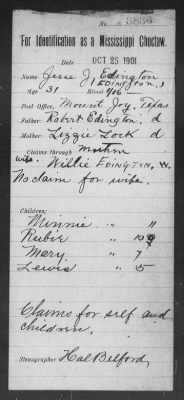 No. 3836
For Identification as a Mississippi Choctaw.
Date OCT 25 1901
Name Jesse J. Edington
(EDINGTON,)
Age 31 Blood 1/16
Post Office, Mount Joy, Texas
Father: Robert Edington, d
Mother: Lizzie Lock d
Claims through Mother
wife. Willie EDINGTON, W.
No claim for wife.
Children:
Minnie " 11
Rubie " 10
Mary " 7
Lewis " 5
Claims for self and
children.
Stenographer Hal Belford,